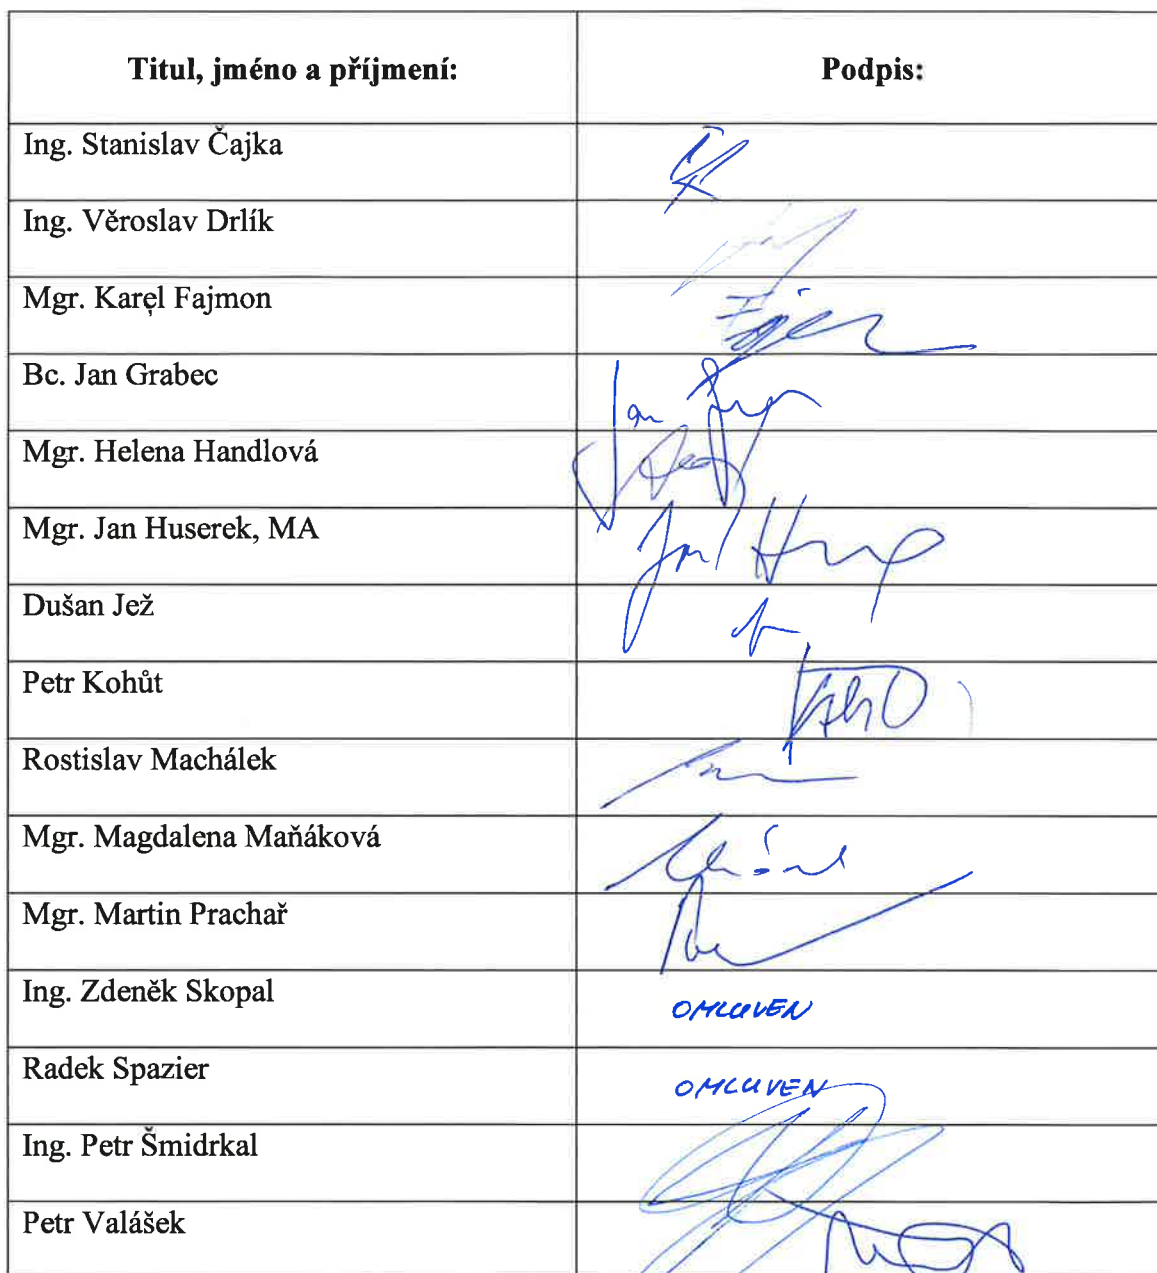 Titul, jméno a příjmení: Podpis:
Ing. Stanislav Čajka
Ing. Věroslav Drlík
Mgr. Karel Fajmon
Bc. Jan Grabec
Mgr. Helena Handlová
Mgr. Jan Huserek, MA
Dušan Jež
Petr Kohůt
Rostislav Machálek
Mgr. Magdalena Maňáková
Mgr. Martin Prachař
Ing. Zdeněk Skopal OMLUVEN
Radek Spazier OMLUVEN
Ing. Petr Šmidrkal
Petr Valášek